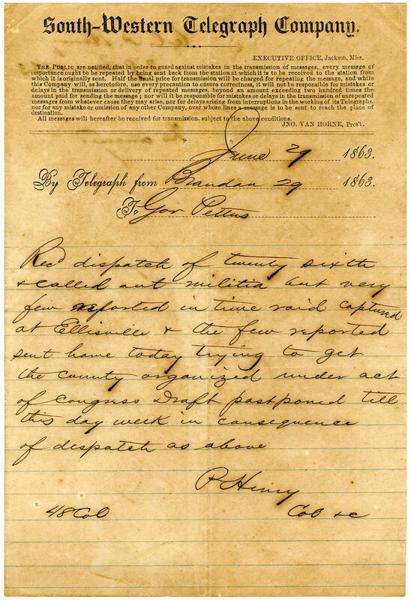 South-Western Telegraph Company.
EXECUTIVE OFFICE, Jackson, Miss.
THE PUBLIC are notified, that in order to guard against mistakes in the transmission of messages, every message of
importance ought to be repeated by being sent back from the station at which it is to be received to the station from
which it is originally sent. Half the usual price for transmission will be charged for repeating the message, and while
this Company will, as heretofore, use every precaution to ensure correctness, it will not be responsible for mistakes or
delays in the transmission or delivery of repeated messages, beyond an amount exceeding two hundred times the
amount paid for sending the message; nor will it be responsible for mistakes or delays in the transmission of unrepeated
messages from whatever cause they may arise, nor for delays arising from interruptions in the working of its Telegraphs,
nor for any mistake or omission of any other Company, over whose lines a message is to be sent to reach the place of
destination.
All messages will hereafter be received for transmission, subject to the above conditions.
JNO. VAN HORNE, Pres't.
June 29 1863.
By Telegraph from Brandon 29 1863.
To Gov Pettus
Recd dispatch of twenty sixth
& called out militia but very
few reported in time raid captured
at Ellisville & the few reported
sent home today trying to get
the county organized under act
of Congress Draft postponed till
this day week in consequence
of dispatch as above
P Henry
48 Col Col &c